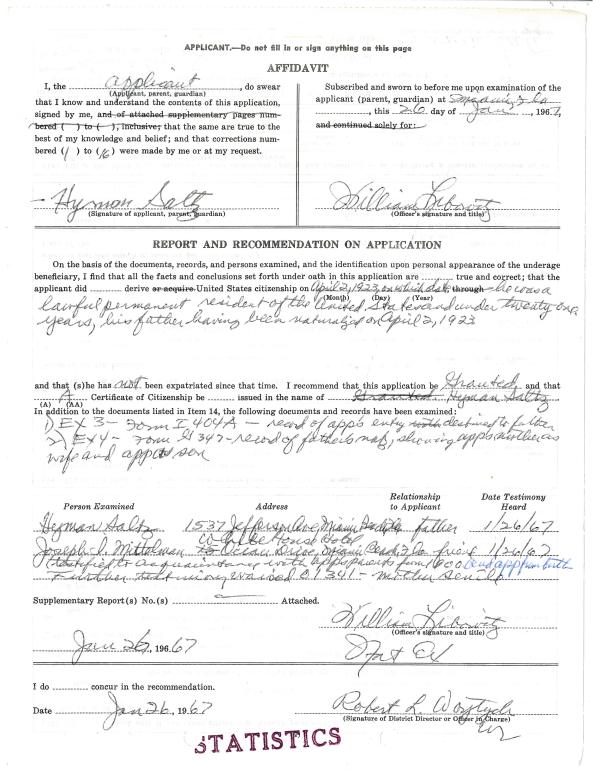 APPLICANT.—Do not fill in or sign anything on this page
AFFIDAVIT
I, the applicant, do swear
(Applicant, parent, guardian)
that I know and understand the contents of this application,
signed by me, and of attached supplementary pages num-
bered ( ) to ( ), inclusive; that the same are true to the
best of my knowledge and belief; and that corrections num-
bered (1) to (16) were made by me or at my request.
Hymon Saltz
(Signature of applicant, parent, guardian)
Subscribed and sworn to before me upon examination of the
applicant (parent, guardian) at Miami, Fla
, this 26 day of Jan, 1967,
and continued solely for:
William Libowitz
(Officer's signature and title)
REPORT AND RECOMMENDATION ON APPLICATION
On the basis of the documents, records, and persons examined, and the identification upon personal appearance of the underage
beneficiary, I find that all the facts and conclusions set forth under oath in this application are true and correct; that the
applicant did derive or acquire United States citizenship on April 2, 1923, on which date, through he was a
(Month) (Day) (Year)
lawful permanent resident of the United States and under twenty one
years, his father having been naturalized on April 2, 1923
and that (s)he has not been expatriated since that time. I recommend that this application be Granted and that
A Certificate of Citizenship be issued in the name of Granted. Hyman Saltz
(A) (AA)
In addition to the documents listed in Item 14, the following documents and records have been examined:
1) EX 3 - Form I 404A - record of app's entry with destined to father
2) EX 4 - Form N 347 - record of father's nat, showing app's mother as
wife and app as son
Person Examined Address Relationship to Applicant Date Testimony Heard
Hyman Saltz 1537 Jefferson Ave, Miami Beach, Fla father 1/26/67
House Hotel
Joseph I. Mittelman Ocean Drive, Miami Beach, Fla friend 1/26/67
Testified to acquaintance with app's parents from 1900 and app from birth
Further testimony waived O.I. 341 - mother senile
Supplementary Report(s) No.(s) Attached.
William Libowitz
(Officer's signature and title)
Jan 26, 1967
I do concur in the recommendation.
Date Jan 26, 1967
Robert L.
(Signature of District Director or Officer in Charge)
STATISTICS